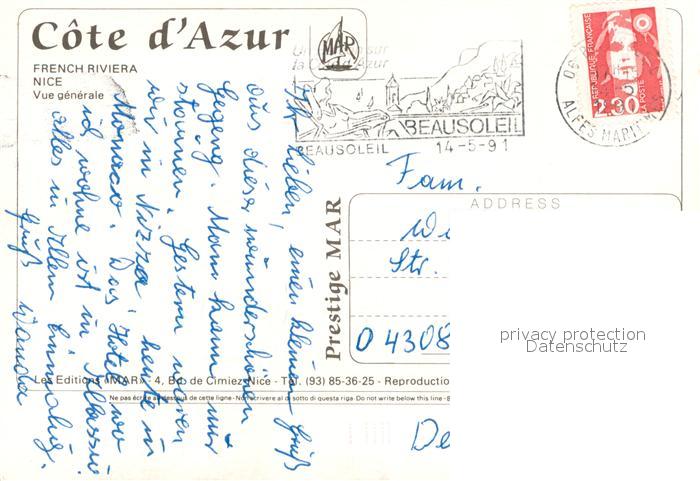 Côte d'Azur
FRENCH RIVIERA
NICE
Vue générale
MAR
BEAUSOLEIL
BEAUSOLEIL 14-5-91
REPUBLIQUE FRANÇAISE
LA POSTE
2.30
06
ALPES MARITIMES
Ihr Lieben, einen kleinen Gruß
aus dieser wunderschönen
Gegend. Mann kann nur
staunen. Gestern waren
wir in Nizza heute in
Monaco. Das Hotel wo
ich wohne ist in Alassio
alles in Allem Einmalig.
Gruß Wanda
Prestige MAR
Fam.
ADDRESS
Str.
O 4308
privacy protection
Datenschutz
Les Editions «MAR» - 4, Bd. de Cimiez Nice - Tél. (93) 85-36-25 - Reproductio
Ne pas écrire au dessous de cette ligne - Non scrivere al di sotto di questa riga - Do not write below this line - B
De